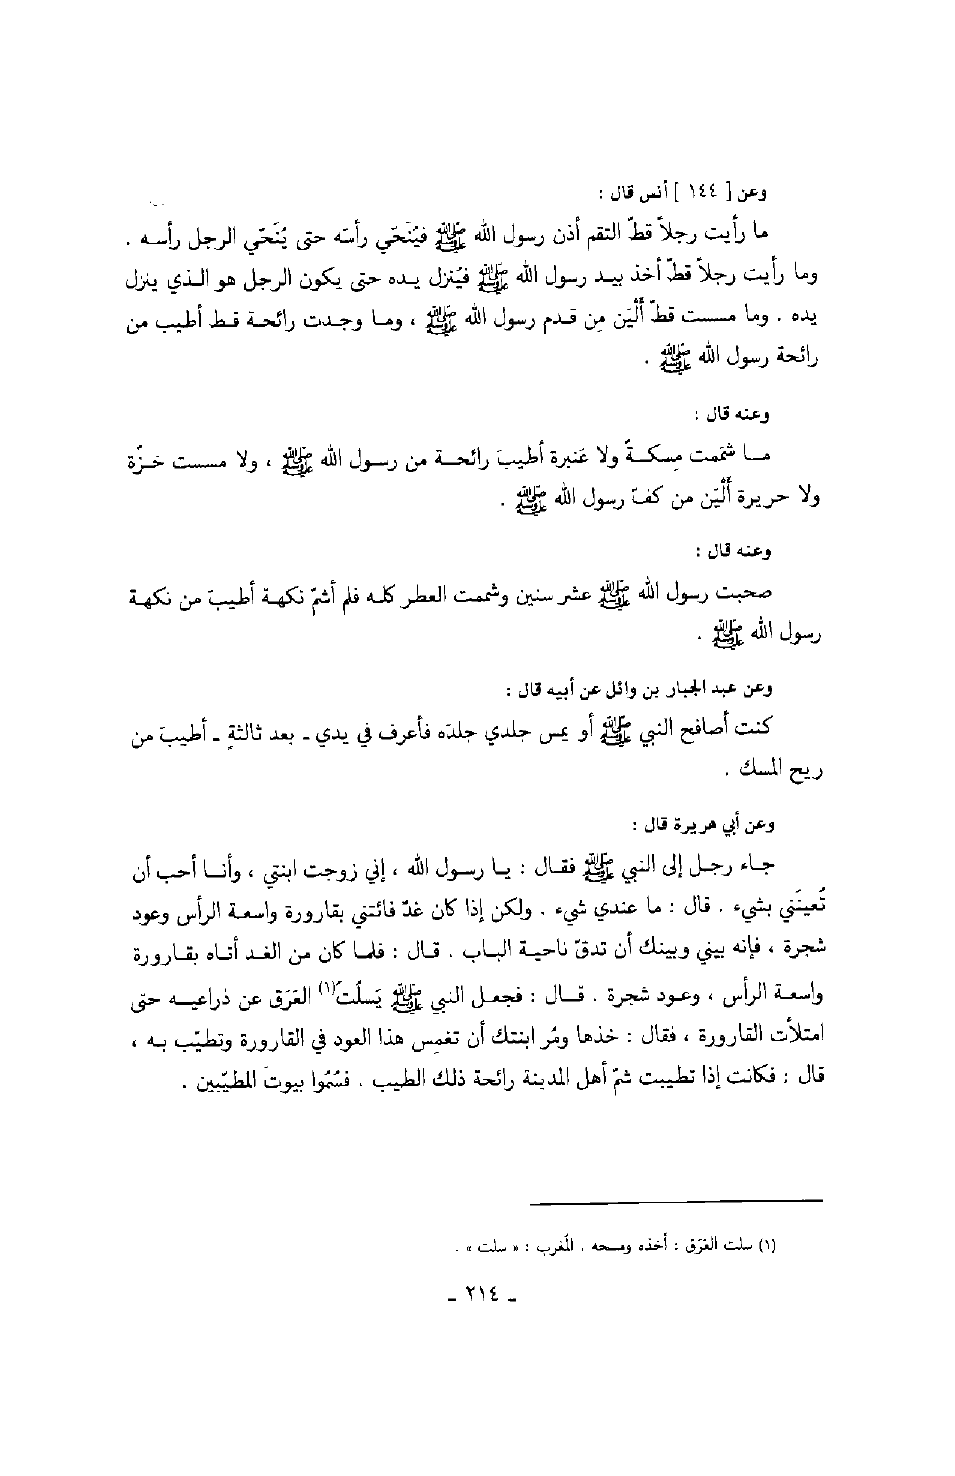 وعن [ ١٤٤ ] أنس قال :
ما رأيت رجلاً قطّ التقم أذن رسول الله ﷺ فيُنَحّي رأسَه حتى يُنَحّي الرجل رأسه .
وما رأيت رجلاً قطّ أخذ بيد رسول الله ﷺ فيُنزل يده حتى يكون الرجل هو الذي ينزل
يده . وما مسست قطّ أَلْيَن مِن قدم رسول الله ﷺ ، وما وجدت رائحة قط أطيب من
رائحة رسول الله ﷺ .
وعنه قال :
ما شمَمت مِسكةً ولا عَنبرة أطيبَ رائحة من رسول الله ﷺ ، ولا مسست خزّة
ولا حريرة أَلْيَن من كفّ رسول الله ﷺ .
وعنه قال :
صحبت رسول الله ﷺ عشر سنين وشممت العطر كله فلم أشمّ نكهة أطيبَ من نكهة
رسول الله ﷺ .
وعن عبد الجبار بن وائل عن أبيه قال :
كنت أصافح النبي ﷺ أو يمس جلدي جلدَه فأعرف في يدي ـ بعد ثالثةٍ ـ أطيبَ من
ريح المسك .
وعن أبي هريرة قال :
جاء رجل إلى النبي ﷺ فقال : يا رسول الله ، إني زوجت ابنتي ، وأنا أحب أن
تُعينَني بشيء . قال : ما عندي شيء . ولكن إذا كان غدٌ فائتني بقارورة واسعة الرأس وعود
شجرة ، فإنه بيني وبينك أن تدقّ ناحية الباب . قال : فلما كان من الغد أتاه بقارورة
واسعة الرأس ، وعود شجرة . قال : فجعل النبي ﷺ يَسلُت(١) العَرَق عن ذراعيه حتى
امتلأت القارورة ، فقال : خذها ومُر ابنتك أن تغمِس هذا العود في القارورة وتطيّب به ،
قال : فكانت إذا تطيبت شمّ أهل المدينة رائحة ذلك الطيب . فسُمُّوا بيوتَ المطيّبين .
(١) سلت العَرَق : أخذه ومسحه . المُغرب : « سلت » .
ـ ٢١٤ ـ